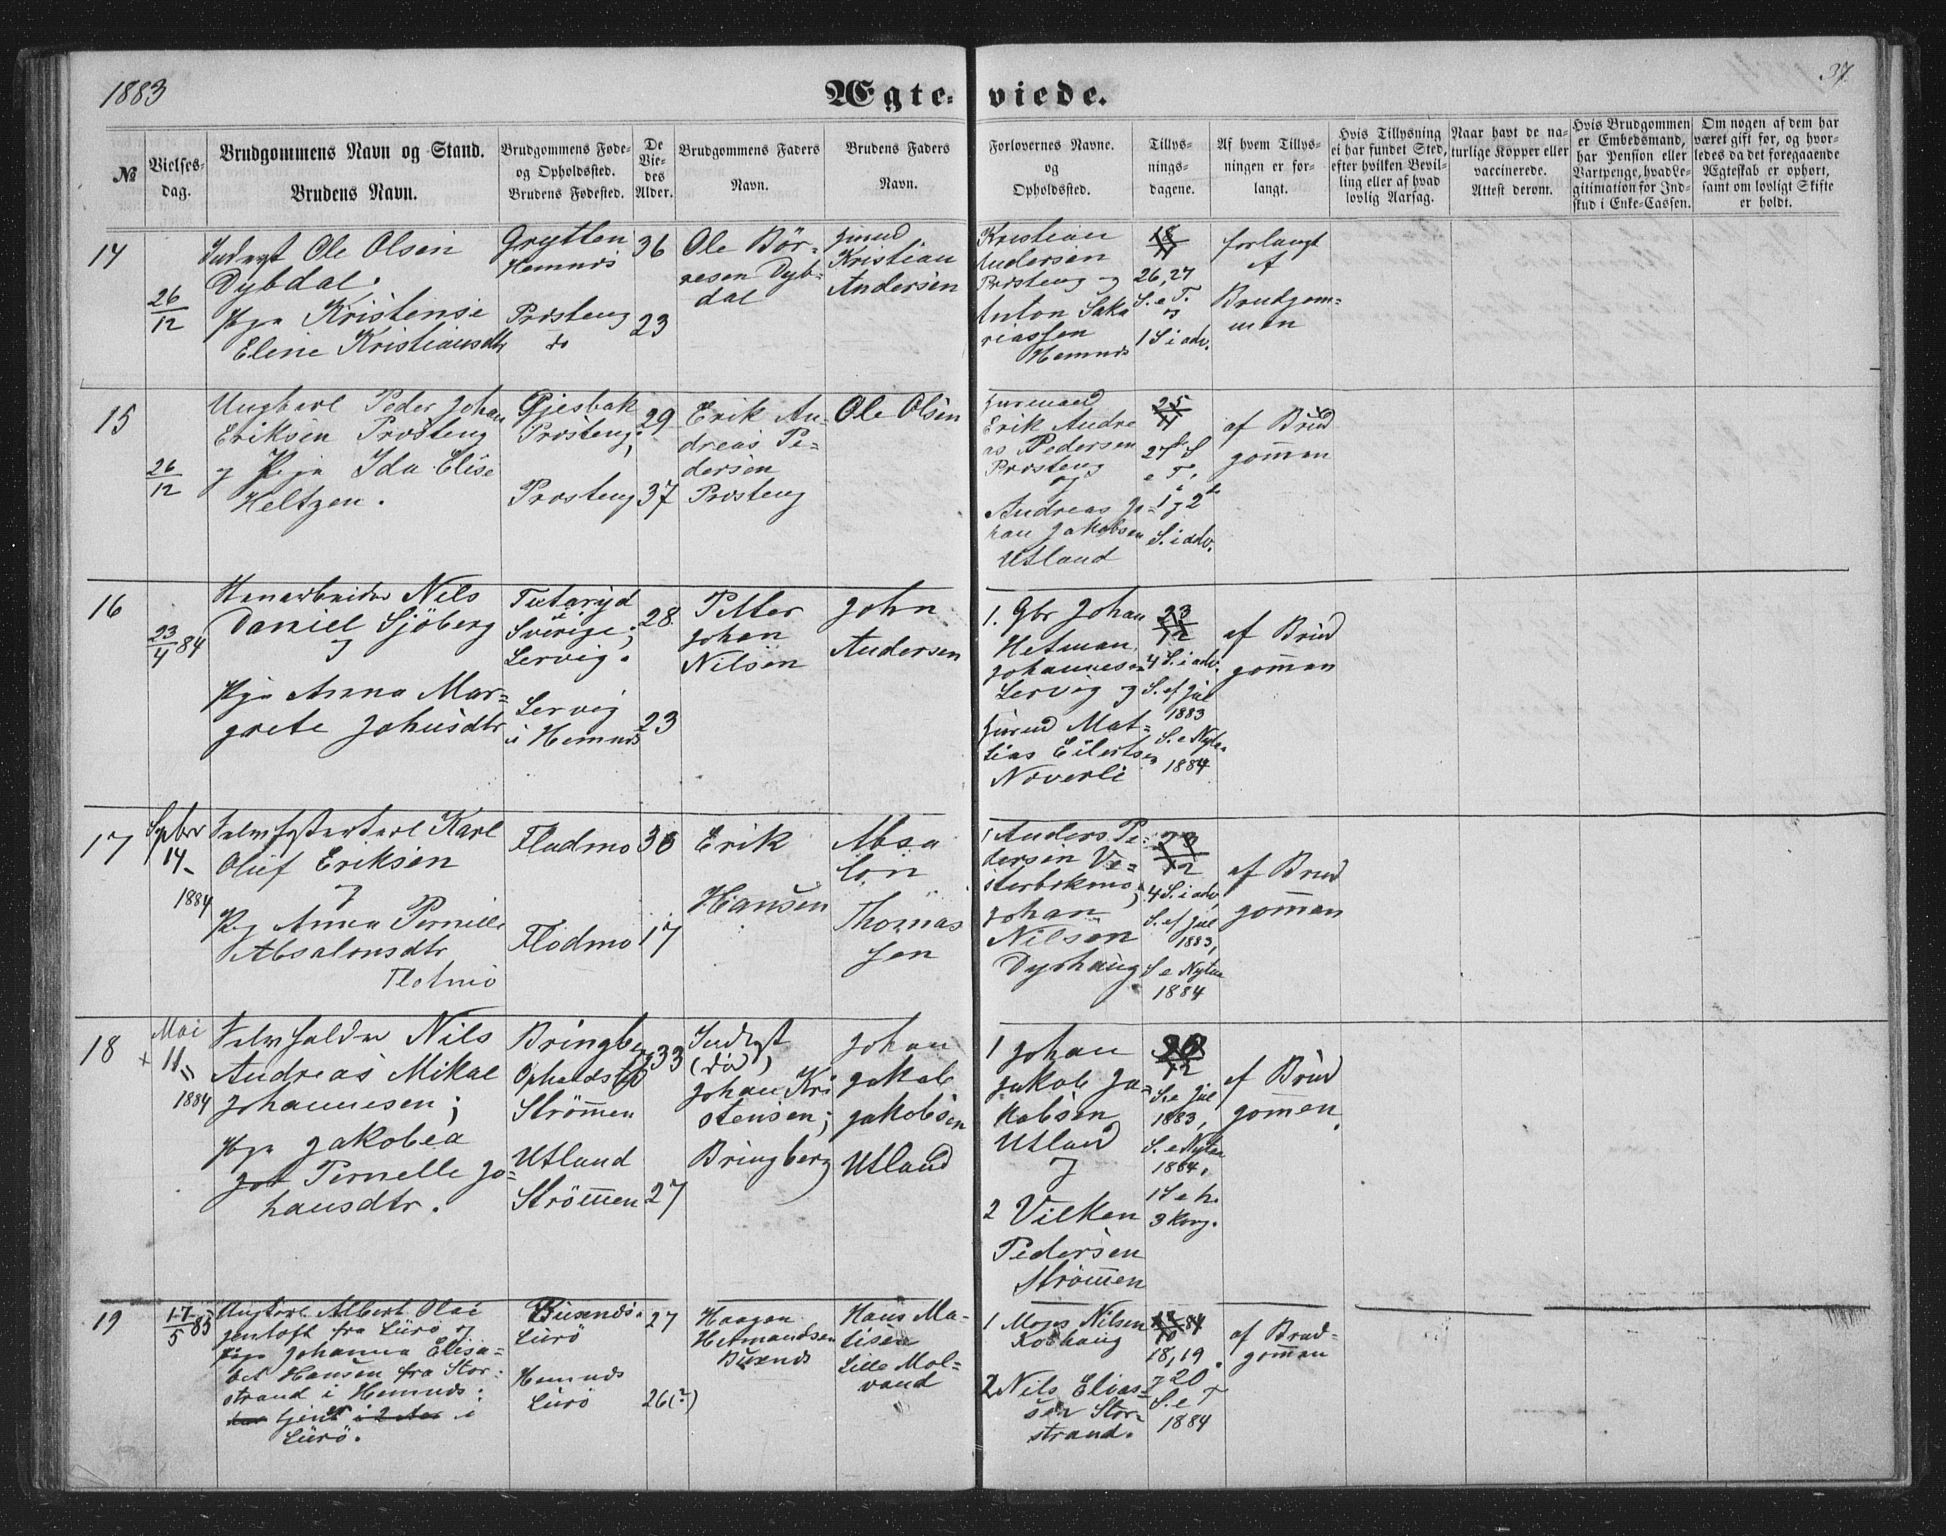 1883
Ægteviede.
37.
№
Vielses-
dag.
Brudgommens Navn og Stand.
Brudens Navn.
Brudgommens Føde-
og Opholdssted.
Brudens Fødested.
De
Vie-
des
Alder.
Brudgommens Faders
Navn.
Brudens Faders
Navn.
Forlovernes Navne.
og
Opholdssted.
Tillys-
nings-
dagene.
Af hvem Tillys-
ningen er for-
langt.
Hvis Tillysning
ei har fundet Sted,
efter hvilken Bevil-
ling eller af hvad
lovlig Aarsag.
Naar havt de na-
turlige Kopper eller
vaccinerede.
Attest derom.
Hvis Brudgommen
er Embedsmand,
har Pension eller
Vartpenge, hvad Le-
gitimation for Ind-
skud i Enke-Cassen.
Om nogen af dem har
været gift før, og hvor-
ledes da det foregaaende
Ægteskab er ophørt,
samt om lovligt Skifte
er holdt.
14
26/12
Inderst Ole Olsen
Dybdal.
Pige Kristense
Eline Kristiansdtr
Grytten
Hemnes
Prosteng
do
36
23
Ole Bör-
resen Dyb-
dal
Kristian
Andersen
Kristian
Andersen
Prosteng og
Anton Saka
riassen
Hemnes
18/11
26, 27
S. e T.
og
1 S i adv.
forlangt
af
Brudgom-
men
15
26/12
Ungkarl Peder Johan
Eriksen Prosteng
og Pige Ida Elise
Heltzen.
Gjesbak
Prosteng;
Prosteng
29
37
Erik An-
dreas Pe-
dersen
Prosteng
Ole Olsen
Erik Andre
as Pedersen
Prosteng
og
Andreas Jo-
han Jakobsen
Utland
25/11
27 S
e T.
1 og 2
S. i adv.
af Brud
gommen
16
23/4 84
Nils
Daniel Sjöberg
og
Pige Anna Mar-
grete Johnsdtr
Tutaryd
i
Sverige;
Lervig.
Lervig
i Hemnes
28
23
Petter
Johan
Nilsen
John
Andersen
1. Gbr Johan
Hetman
Johannesen
Lervig og
Mat-
tias Eilertsen
Noverli
23/12
4 S. i adv.
S. ef jul
1883
S. e Nytaar
1884
af Brud
gommen
17
Septbr
14
1884
Karl
Oluf Eriksen
og
Pige Anna Pernille
Absalonsdtr
Flotmo
Fladmo
Flodmo
36
17
Erik
Hansen
Absa
lon
Thomas
sen
1 Anders Pe-
dersen Ve-
sterbekmo,
Johan
Nilsen
Dyrhaug
23/12
4 S. i adv,
S. ef jul
1883,
S e Nytaar
1884
af Brud
gommen
18
Mai
11
1884
Nils
Andreas Mikal
Johannesen;
Pige Jakobea
Pernelle Jo-
hansdtr.
Bringberg
Opholdsted
Strömmen
Utland
Strömmen
33
27
Inderst
(død)
Johan Kri
stensen;
Bringberg
Johan
Jakob
Jakobsen
Utland
1 Johan
Jakob Ja-
kobsen
Utland
og
2 Vilken
Pedersen
Strömmen
30/12
S. e jul
1883,
S. e Nytaar
1884,
1 S e h.
3 Kong.
af Brud
gommen.
19
17/5 85
Ungkarl Albert Olai
Jentoft fra Lurö og
Pige Johanna Elisa-
bet Hansen fra Stor-
strand i Hemnes;
tjent i 2 Aar i
Lurö.
Busends
Lurö
Hemnes
Lurö
27
26(?)
Haagen
Hermandsen
Busends
Hans Ma-
tisen
Lille Mol-
vand
1 Mons Nilsen
Kobhaug
2 Nils Elias-
sen Stor-
strand.
12/10 84
18, 19.
og 20
S. e T
1884
af Brud-
gommen